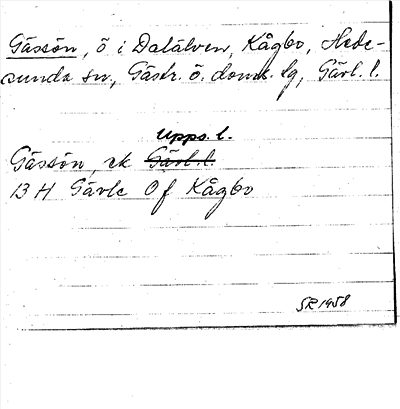 Gåssön, ö i Dalälven, Kågbo, Hede-
sunda sn, Gästr. ö. doms. lg, Gävl. l.
Upps. l.
Gåssön, ek Gävl. l.
13 H Gävle 0 f Kågbo
SR 1958